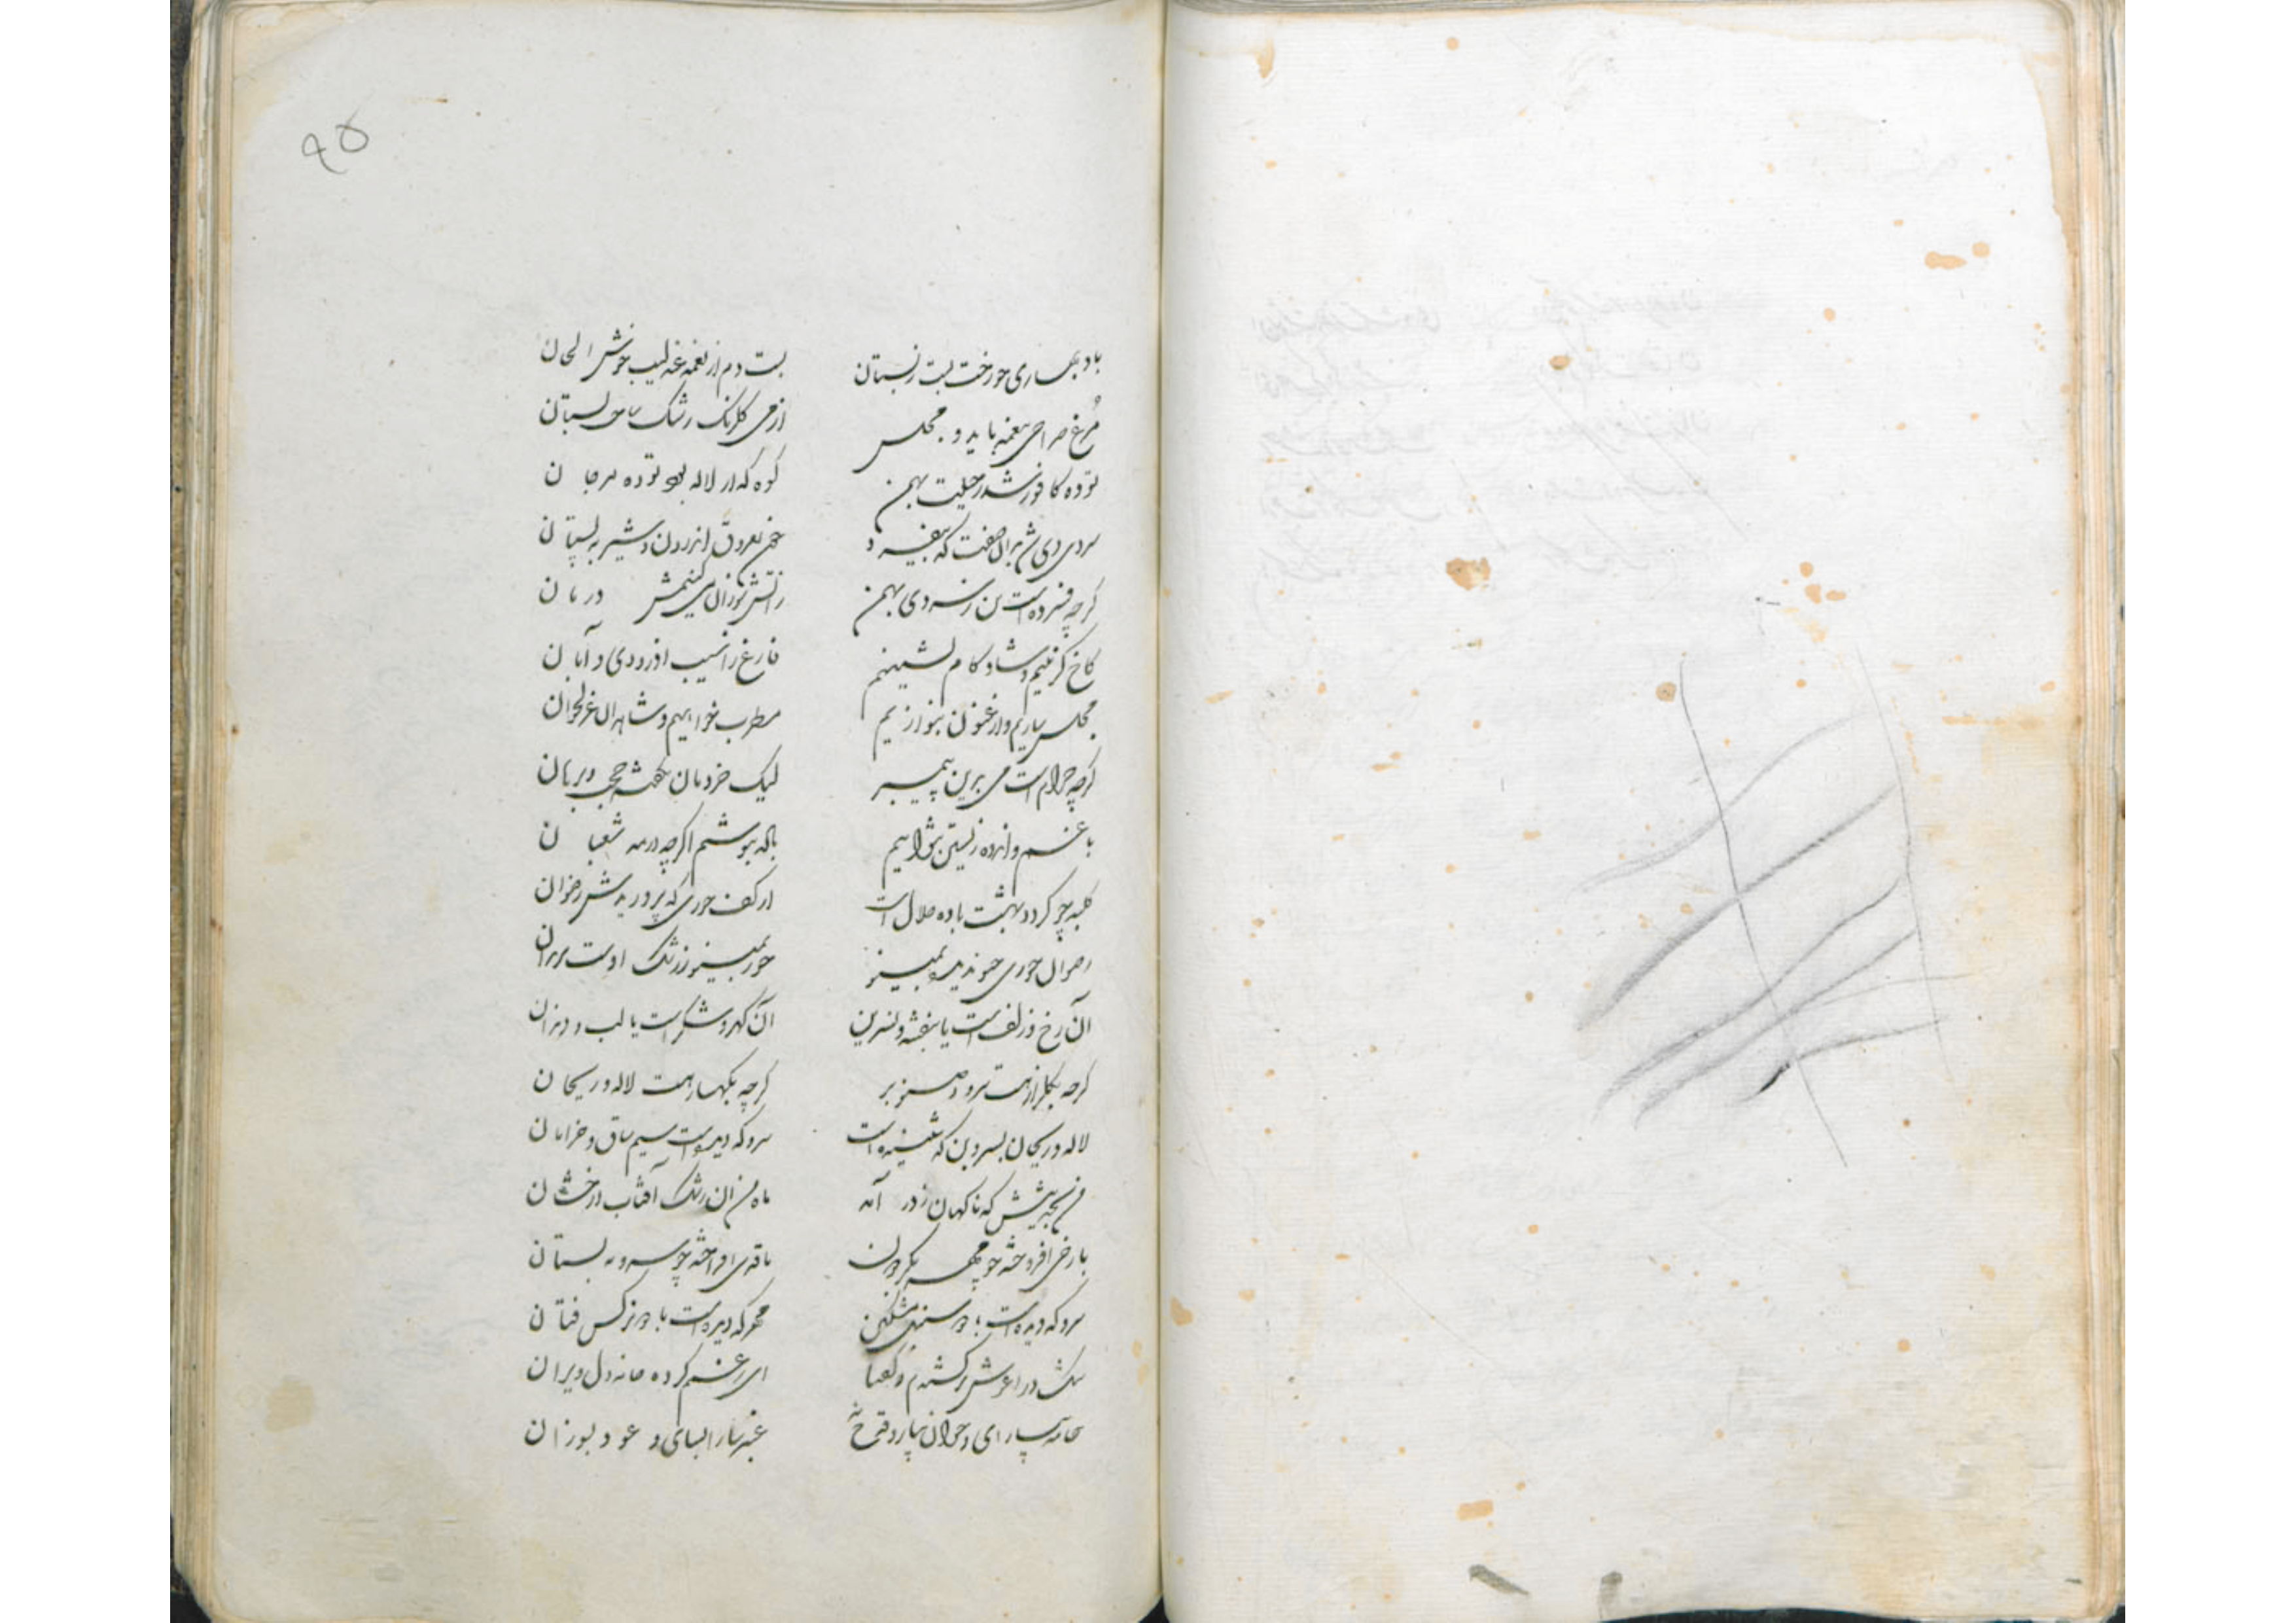 ۹۵
باد بهاری چو رخت بست ز بستان بست دم از نغمه عندلیب خوش الحان
مرغ صراحی بنغمه باید و مجلس از می گلرنگ رشک ساحت بستان
توده کافور شد ز حیلت بهمن کوه که از لاله بود توده مرجان
سردی دی شد بدان صفت که بیفسرد خون بعروق اندرون و شیر به پستان
گرچه فسرده است تن ز سردی بهمن زآتش سوزان می کنیمش درمان
کاخ گزینیم و شاد کام نشینیم فارغ از آسیب آذر و دی و آبان
مجلس سازیم و ارغنون بنوازیم مطرب خواهیم و شاهدان غزلخوان
گرچه حرام است می بدین پیمبر لیک خرد مان بگفته حجت و برهان
با غم و انده زیستن نتوانیم باده بنوشم اگرچه در مه شعبان
کلبه چو گردد بهشت باده حلال است از کف حوری که پروریدش رضوان
رضوان حوری چنو ندیده بمینو حور بمینو ز رشک اوست
آن رخ و زلف است یا بنفشه و نسرین آن گهر و شکر است یا لب و دندان
گرچه بگلزار هست سرو و صنوبر گرچه بکهسار هست لاله و ریحان
لاله و ریحان بسرو بن که شنیده است سرو که دیده است سیم ساق و خرامان
من بخیالش که ناگهان ز در آمد ماه من آن رشک آفتاب درخشان
با رخی افروخته چو مهر بگردون با قدی افراخته چو سرو به بستان
سرو که دیده است با دو سنبل مشکین مهر که دیده است با دو نرگس فتان
تنگ در آغوش برکشیدم و گفتا ای ز غم کرده خانه دل ویران
خامه بیارای و خوان بیار و قدح عنبر سارا بسای و عود بسوزان